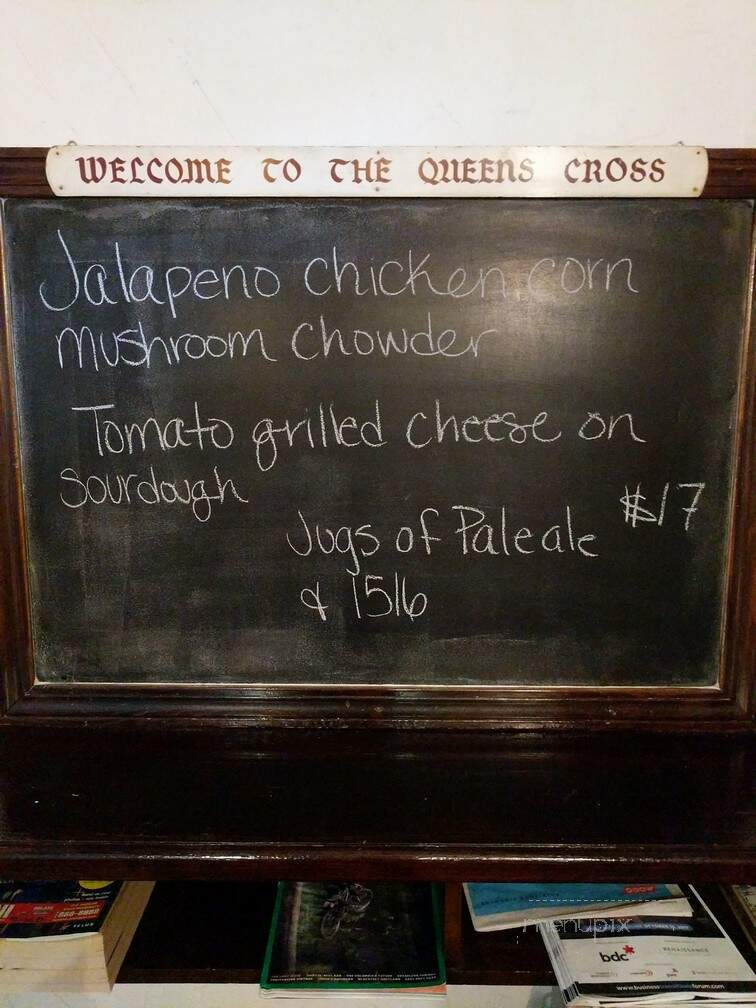 WELCOME TO THE QUEENS CROSS
Jalapeno chicken corn
mushroom chowder
Tomato grilled cheese on
sourdough
$17
Jugs of Pale ale
& 1516
menupix
bdc
RENAISSANCE
TELUS